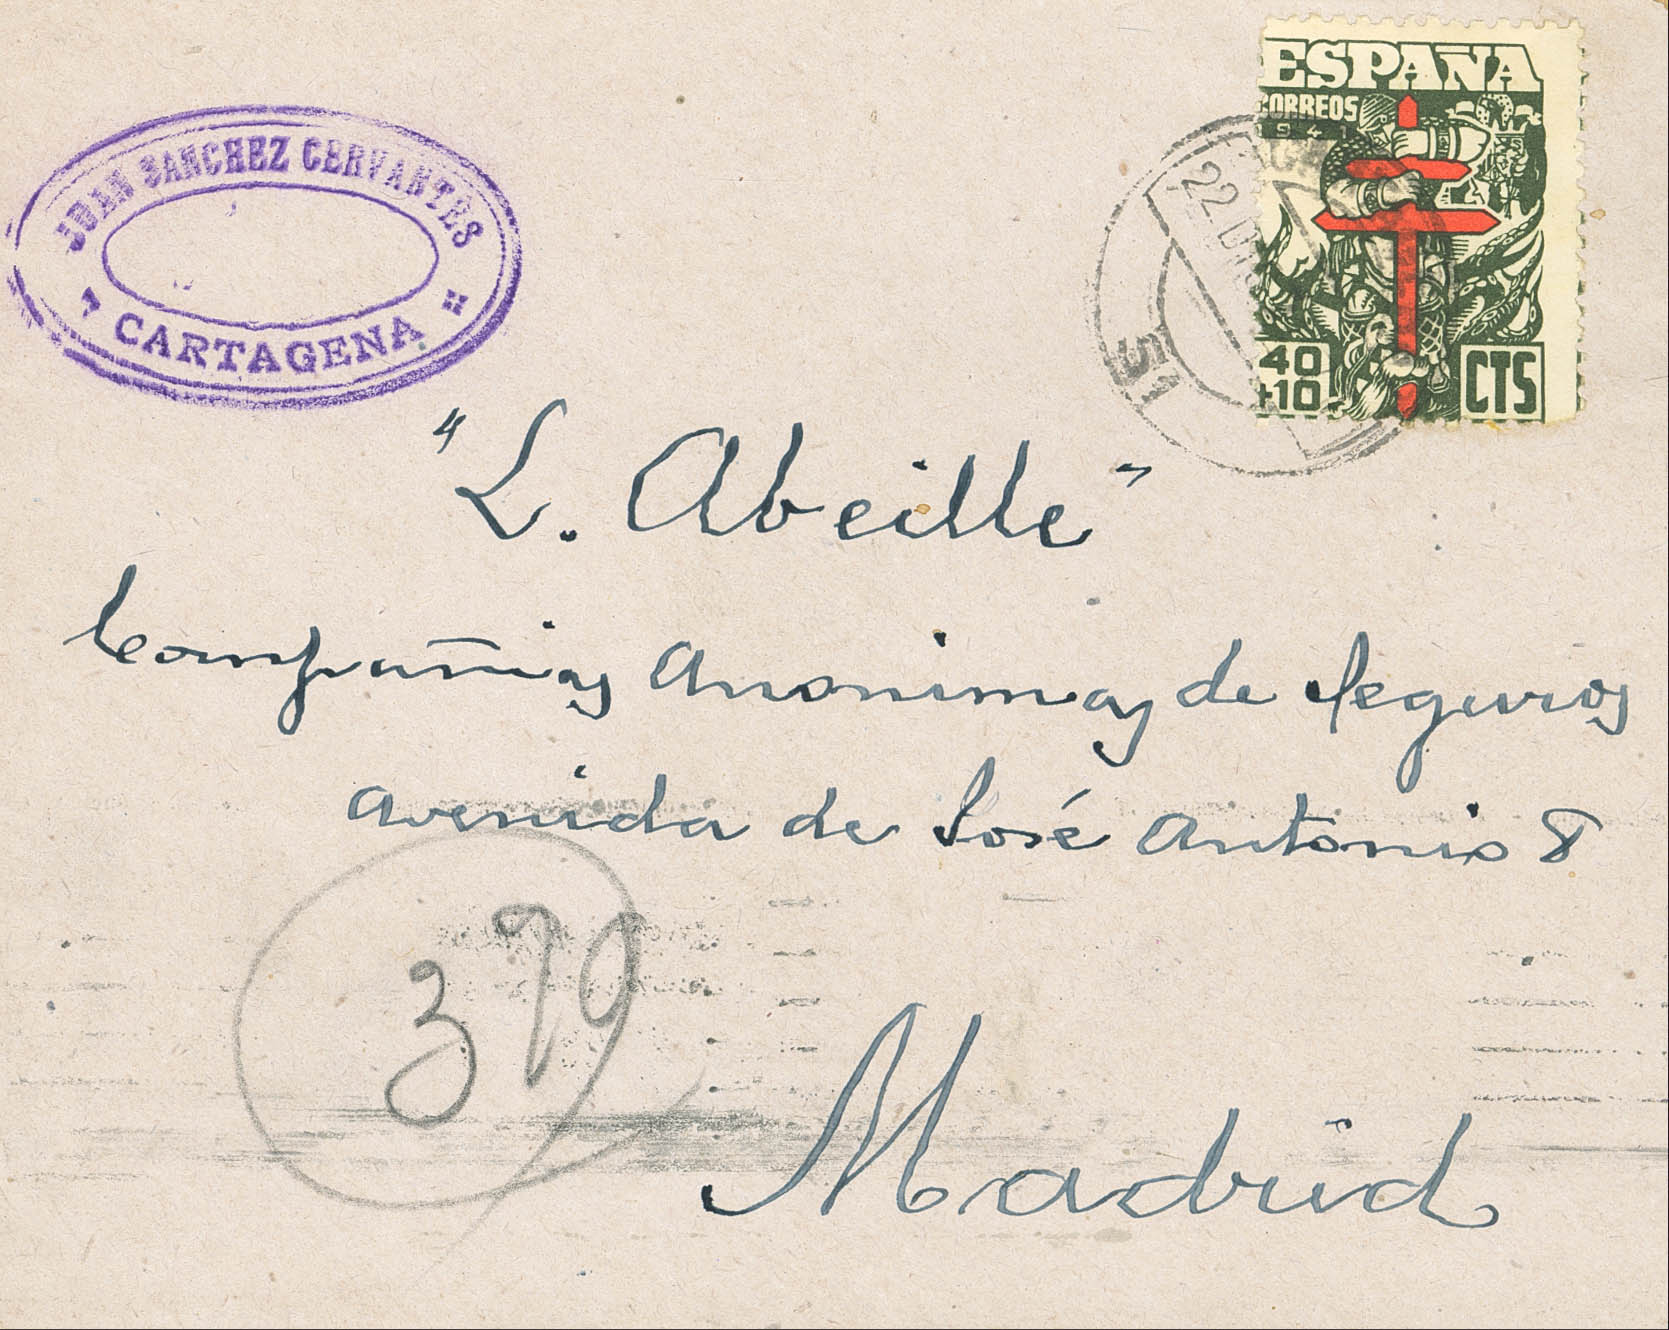 ESPAÑA
CORREOS
1941
JUAN SANCHEZ CERVANTES
CARTAGENA
22 D
51
40
+10
CTS
"L. Abeille"
Compañias Anonimas de Seguros
Avenida de José Antonio 8
379
Madrid